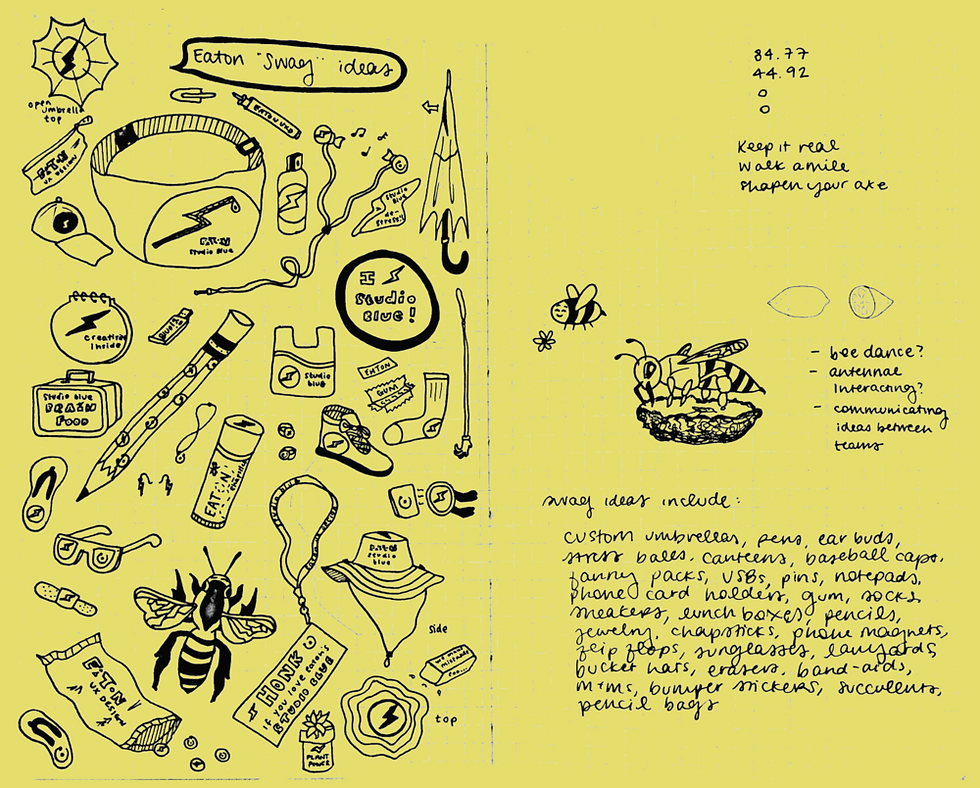 Eaton "Swag" ideas
open umbrella
top
EATON
UX DESIGN
EATON UXD
Studio
blue
de-
stress!!
EATON
Studio Blue
I
Studio
Blue!
creativity
inside
Studio
blue
EATON
GUM
Studio blue
BRAIN
FOOD
EATON
EATON
studio
blue
side
EATON
UX DESIGN
HONK
if you love Eaton's
STUDIO BLUE
we make
mistakes
too
top
PLANT
POWER
84.77
44.92
0
0
Keep it real
walk a mile
sharpen your axe
- bee dance?
- antennae
interacting?
- communicating
ideas between
teams
swag ideas include:
custom umbrellas, pens, ear buds,
stress balls. canteens, baseball caps,
fanny packs, USBs, pins, notepads,
phone card holders, gum, socks,
sneakers, lunch boxes, pencils,
jewelry, chapsticks, phone magnets,
flip flops, sunglasses, lanyards,
bucket hats, erasers, band-aids,
m+ms, bumper stickers, succulents,
pencil bags